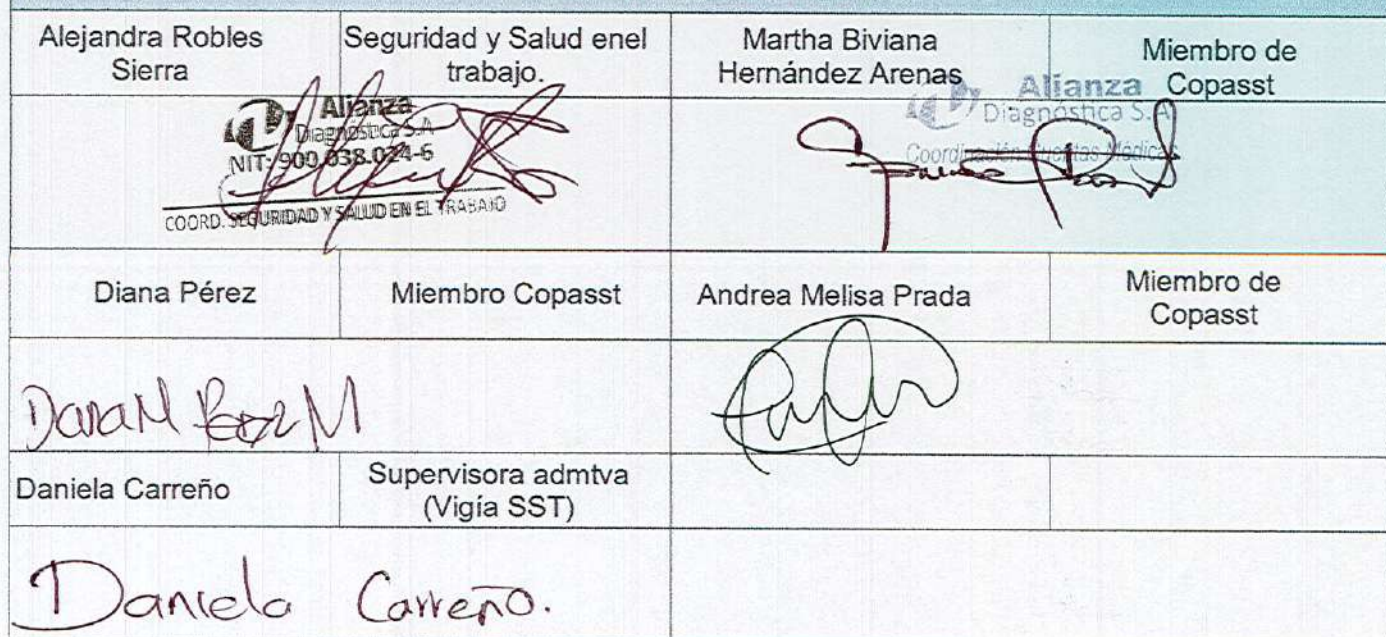 Alejandra Robles
Sierra
Seguridad y Salud enel
trabajo.
Martha Biviana
Hernández Arenas
Miembro de
Copasst
Alianza
Diagnóstica S.A
NIT: 900.038.024-6
COORD. SEGURIDAD Y SALUD EN EL TRABAJO
Alianza
Diagnóstica S.A
Coordinación Cuentas Médicas
Diana Pérez
Miembro Copasst
Andrea Melisa Prada
Miembro de
Copasst
Daniela Carreño
Supervisora admtva
(Vigía SST)
Daniela Carreño.